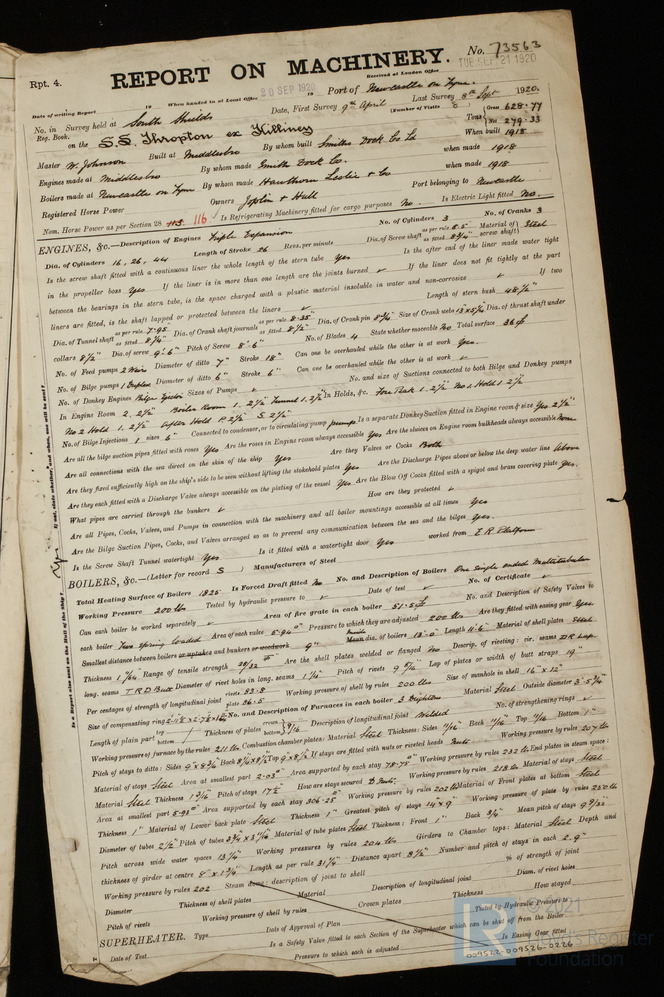 Rpt. 4.
REPORT ON MACHINERY.
No. 73563
Received at London Office
TUE. SEP. 21 1920
Date of writing Report 19 When handed in at Local Office 20 SEP 1920 19 Port of Newcastle on Tyne.
No. in Reg. Book. Survey held at South Shields Date, First Survey 9th April Last Survey 8th Sept 1920.
(Number of Visits
on the S.S. Thropton ex Killiney Tons Gross 628.77 Net 279.33
Master W. Johnson Built at Middlesbro By whom built Smiths Dock Co Ld When built 1918
Engines made at Middlesbro By whom made Smiths Dock Co. when made 1918
Boilers made at Newcastle on Tyne By whom made Hawthorn Leslie & Co when made 1918.
Registered Horse Power Owners Joplin & Hull Port belonging to Newcastle
Nom. Horse Power as per Section 28 113 116 Is Refrigerating Machinery fitted for cargo purposes No. Is Electric Light fitted No.
ENGINES, &c.—Description of Engines Triple Expansion No. of Cylinders 3 No. of Cranks 3
Dia. of Cylinders 16, 26, 44 Length of Stroke 26 Revs. per minute Dia. of Screw shaft as per rule 8.5" as fitted 8 3/4" Material of screw shaft Steel
Is the screw shaft fitted with a continuous liner the whole length of the stern tube Yes Is the after end of the liner made water tight
in the propeller boss Yes If the liner is in more than one length are the joints burned ✓ If the liner does not fit tightly at the part
between the bearings in the stern tube, is the space charged with a plastic material insoluble in water and non-corrosive ✓ If two
liners are fitted, is the shaft lapped or protected between the liners ✓ Length of stern bush 48 1/2"
Dia. of Tunnel shaft as per rule 7.95 as fitted 8 1/4" Dia. of Crank shaft journals as per rule 8.35" as fitted 8 1/2" Dia. of Crank pin 8 3/4" Size of Crank webs Dia. of thrust shaft under
collars 8 1/2" Dia. of screw 9'-6" Pitch of Screw 8'-6" No. of Blades 4 State whether moceable No Total surface 36
No. of Feed pumps 2 Diameter of ditto 7" Stroke 18" Can one be overhauled while the other is at work Yes.
No. of Bilge pumps 1 Duplex Diameter of ditto 6" Stroke 6" Can one be overhauled while the other is at work ✓
No. of Donkey Engines Sizes of Pumps ✓ No. and size of Suctions connected to both Bilge and Donkey pumps
In Engine Room 2. 2 1/2" Boiler Room 1. 2 1/2" Tunnel 1. 2 1/2" In Holds, &c. Fore Peak 1. 2 1/2" No 1 Hold 1 2 1/2"
No 2 Hold 1. 2 1/2" After Hold P. 2 1/2" S. 2 1/2"
No. of Bilge Injections 1 sizes 6" Connected to condenser, or to circulating pump pumps Is a separate Donkey Suction fitted in Engine room & size Yes 2 1/2"
Are all the bilge suction pipes fitted with roses Yes Are the roses in Engine room always accessible Yes Are the sluices on Engine room bulkheads always accessible None
Are all connections with the sea direct on the skin of the ship Yes Are they Valves or Cocks Both
Are they fixed sufficiently high on the ship's side to be seen without lifting the stokehold plates Yes Are the Discharge Pipes above or below the deep water line Above
Are they each fitted with a Discharge Valve always accessible on the plating of the vessel Yes Are the Blow Off Cocks fitted with a spigot and brass covering plate Yes.
What pipes are carried through the bunkers ✓ How are they protected ✓
Are all Pipes, Cocks, Valves, and Pumps in connection with the machinery and all boiler mountings accessible at all times Yes
Are the Bilge Suction Pipes, Cocks, and Valves arranged so as to prevent any communication between the sea and the bilges Yes.
Is the Screw Shaft Tunnel watertight Yes Is it fitted with a watertight door Yes worked from E.R. Platform
BOILERS, &c.—(Letter for record S ) Manufacturers of Steel
Total Heating Surface of Boilers 1825 Is Forced Draft fitted No No. and Description of Boilers One single ended Multitubular
Working Pressure 200 lbs Tested by hydraulic pressure to ✓ Date of test ✓ No. of Certificate ✓
Can each boiler be worked separately ✓ Area of fire grate in each boiler No. and Description of Safety Valves to
each boiler Two spring loaded Area of each valve 5.94" Pressure to which they are adjusted 200 lbs Are they fitted with easing gear Yes
Smallest distance between boilers or uptakes and bunkers or woodwork 9" Inside dia. of boilers 13'-0" Length 11'-6" Material of shell plates Steel
Thickness Range of tensile strength 28/32 Are the shell plates welded or flanged No Descrip. of riveting: cir. seams D R Lap
long. seams T.R.D.Butt Diameter of rivet holes in long. seams 1 1/4" Pitch of rivets Lap of plates or width of butt straps 19"
Per centages of strength of longitudinal joint rivets 83.8 plate 86.5 Working pressure of shell by rules 200 lbs Size of manhole in shell 16" x 12"
Size of compensating ring No. and Description of Furnaces in each boiler 3 Deighton Material Steel Outside diameter 3'-5 3/4"
Length of plain part top bottom Thickness of plates crown bottom 9/16" Description of longitudinal joint Welded No. of strengthening rings ✓
Working pressure of furnace by the rules 211 lbs Combustion chamber plates: Material Steel Thickness: Sides Back Top Bottom 1"
Pitch of stays to ditto: Sides Back Top If stays are fitted with nuts or riveted heads Nuts Working pressure by rules 207 lbs
Material of stays Steel Area at smallest part 2.03" Area supported by each stay 78.75" Working pressure by rules 232 lbs End plates in steam space:
Material Steel Thickness Pitch of stays 17 1/2" How are stays secured D. Nuts. Working pressure by rules 218 lbs Material of stays Steel
Area at smallest part Area supported by each stay 306.25" Working pressure by rules 202 lbs Material of Front plates at bottom Steel
Thickness 1" Material of Lower back plate Steel Thickness 1" Greatest pitch of stays 14" x 9" Working pressure of plate by rules 200 lb
Diameter of tubes 2 1/2" Pitch of tubes Material of tube plates Steel Thickness: Front 1" Back 3/4" Mean pitch of stays
Pitch across wide water spaces 13 3/4" Working pressures by rules 204 lbs Girders to Chamber tops: Material Steel Depth and
thickness of girder at centre Length as per rule 31 1/4" Distance apart 8 1/2" Number and pitch of stays in each 2. 9"
Working pressure by rules 202 Steam dome: description of joint to shell % of strength of joint
Diameter Thickness of shell plates Material Description of longitudinal joint Diam. of rivet holes
Pitch of rivets Working pressure of shell by rules Crown plates Thickness How stayed
SUPERHEATER. Type Date of Approval of Plan Tested by Hydraulic Pressure to
Date of Test Is a Safety Valve fitted to each Section of the Superheater which can be shut off from the Boiler
Pressure to which each is adjusted Is Easing Gear fitted
© 2021
Lloyd's Register
Foundation
009522-009526-0226